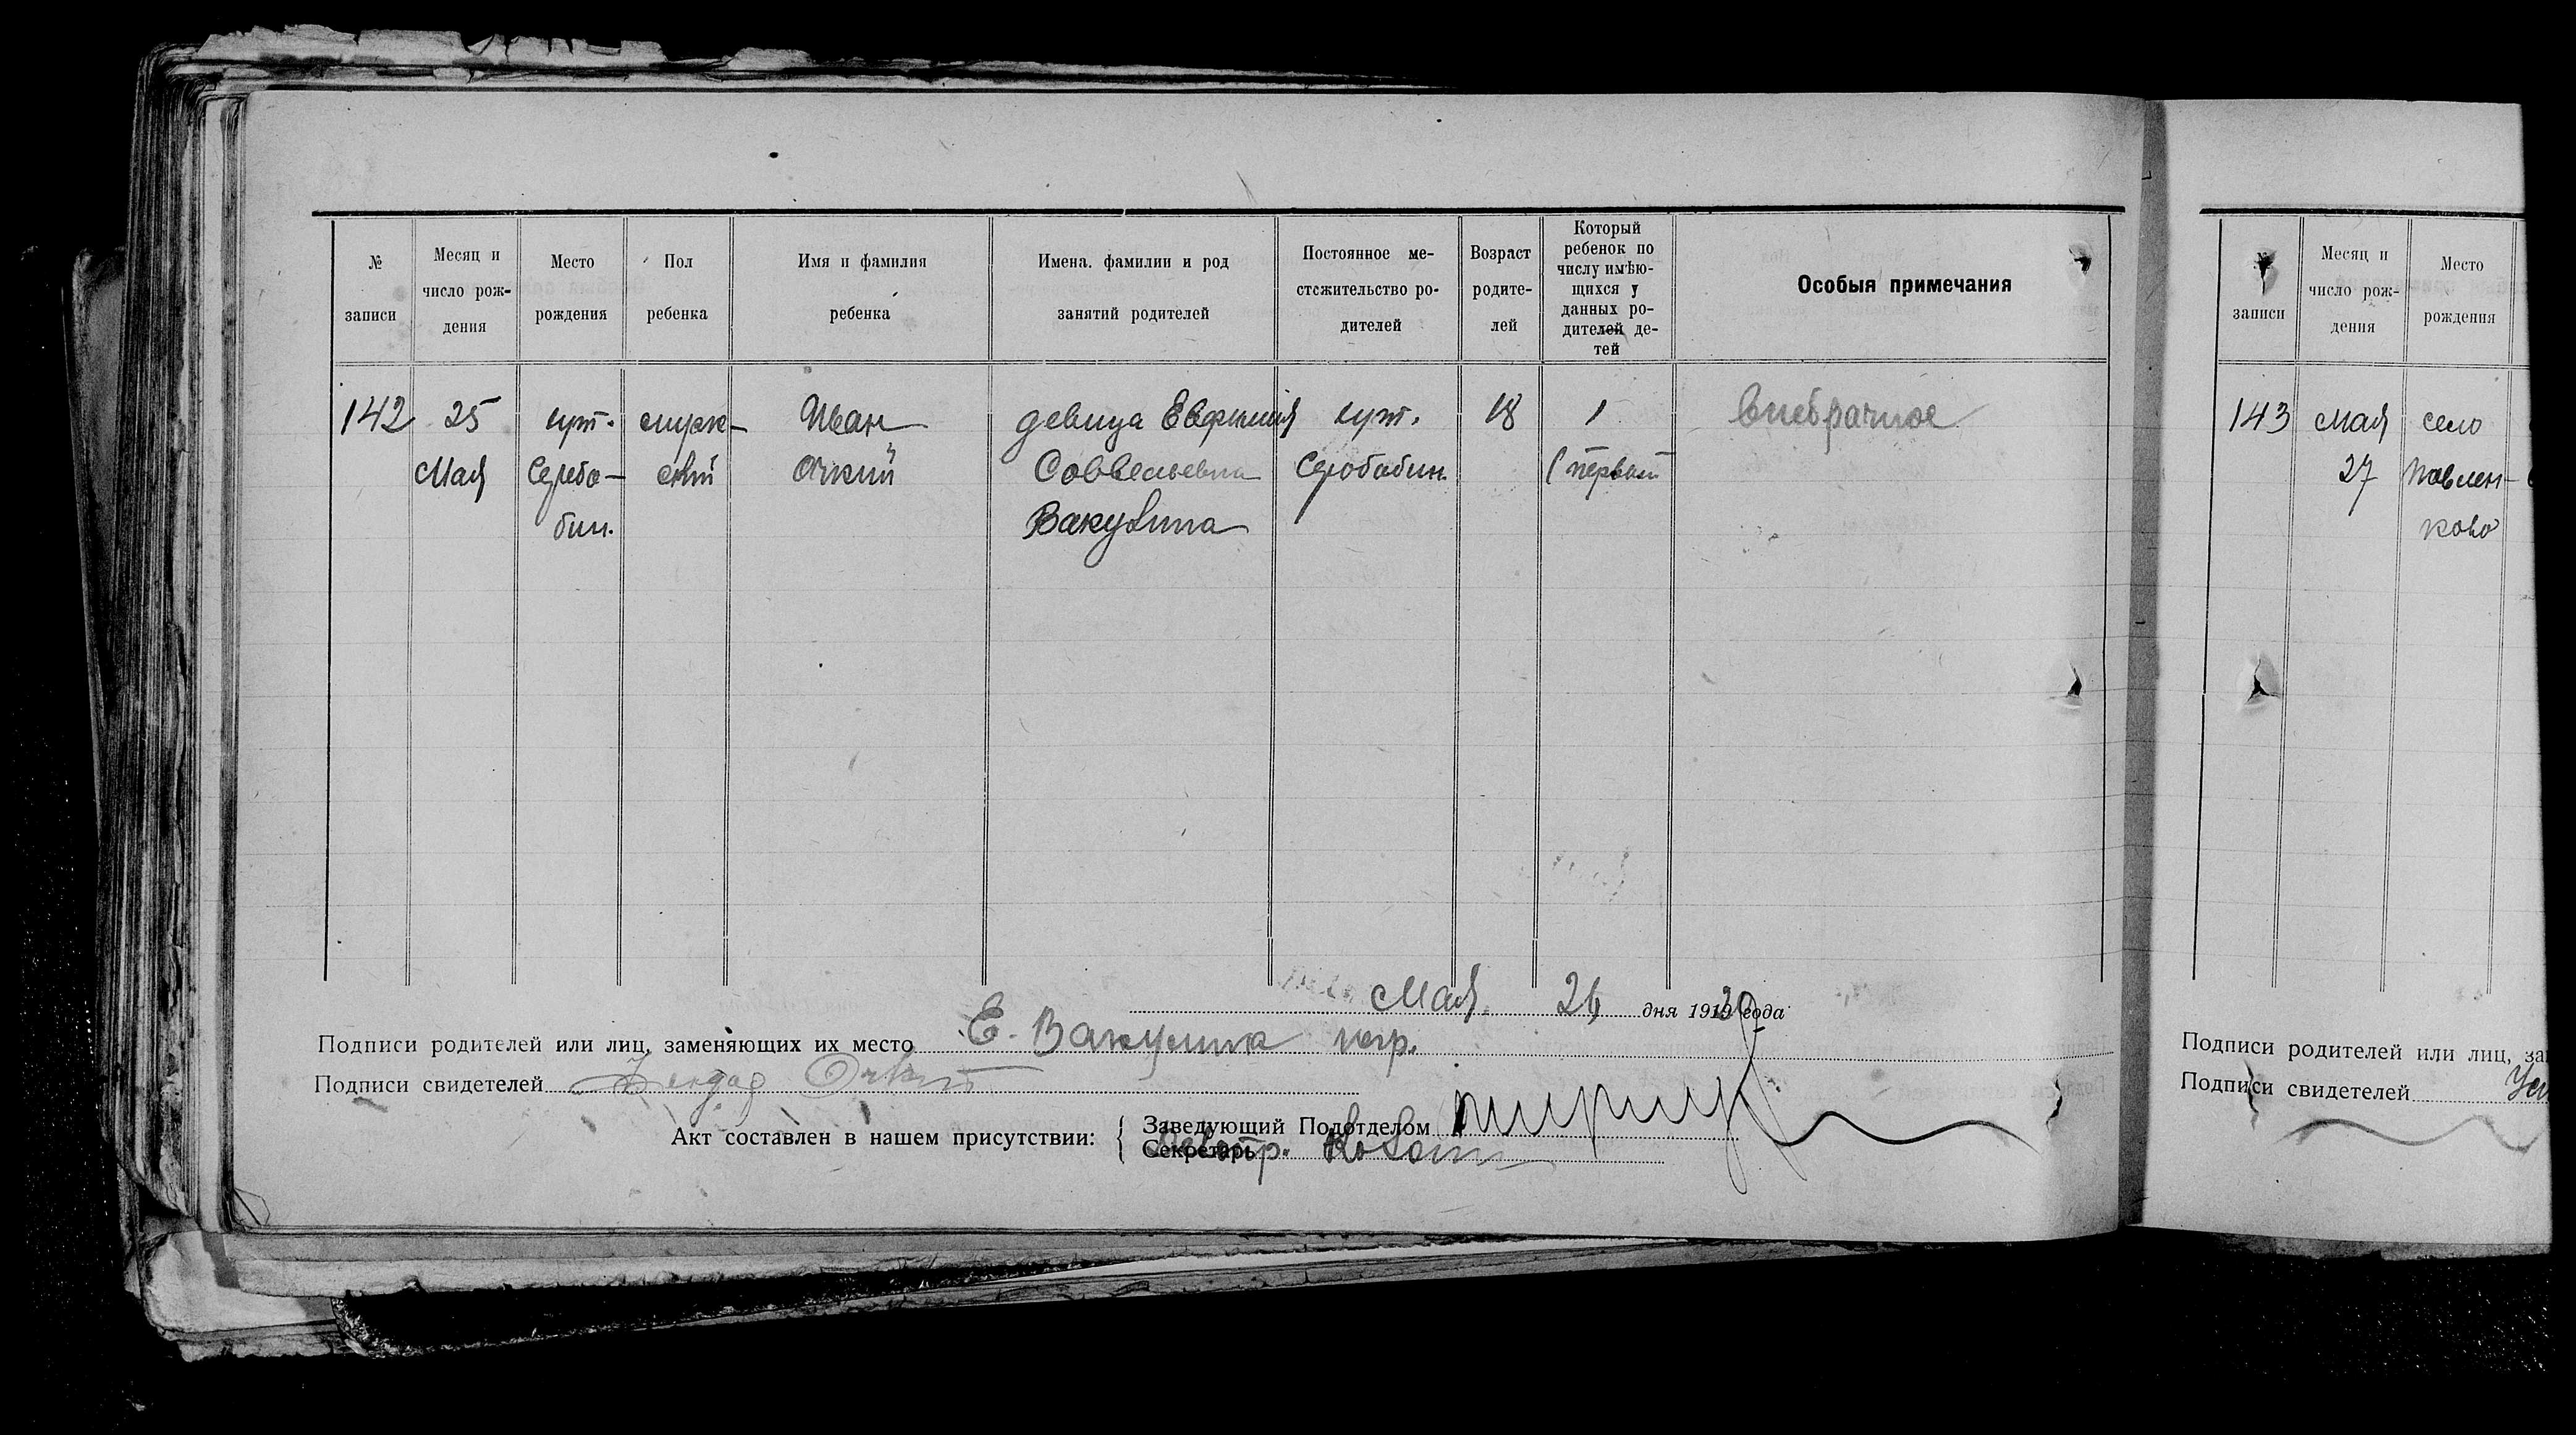 № записи
Месяц и число рож-дения
Место рождения
Пол ребенка
Имя и фамилия ребенка
Имена. фамилии и род занятий родителей
Постоянное ме-стсжительство ро-дителей
Возраст родите-лей
Который ребенок по числу имѣю-щихся у данных ро-дителей де-тей
Особыя примечания
142 25 хут. мужс- Иван девица Евфимия хут. 18 1 Внебрачное
Мая Серебо- кий Очкий Саввельевна (первый
бин. Вакулина
Мая 26 дня 1920 года
Подписи родителей или лиц, заменяющих их место Е. Вакулина негр.
Подписи свидетелей
Акт составлен в нашем присутствии:
Заведующий Подотделом
Секретарь
№ записи
Месяц и число рож-дения
Место рождения
143 мая село
27 Павлен-
ково
Подписи родителей или лиц, за
Подписи свидетелей